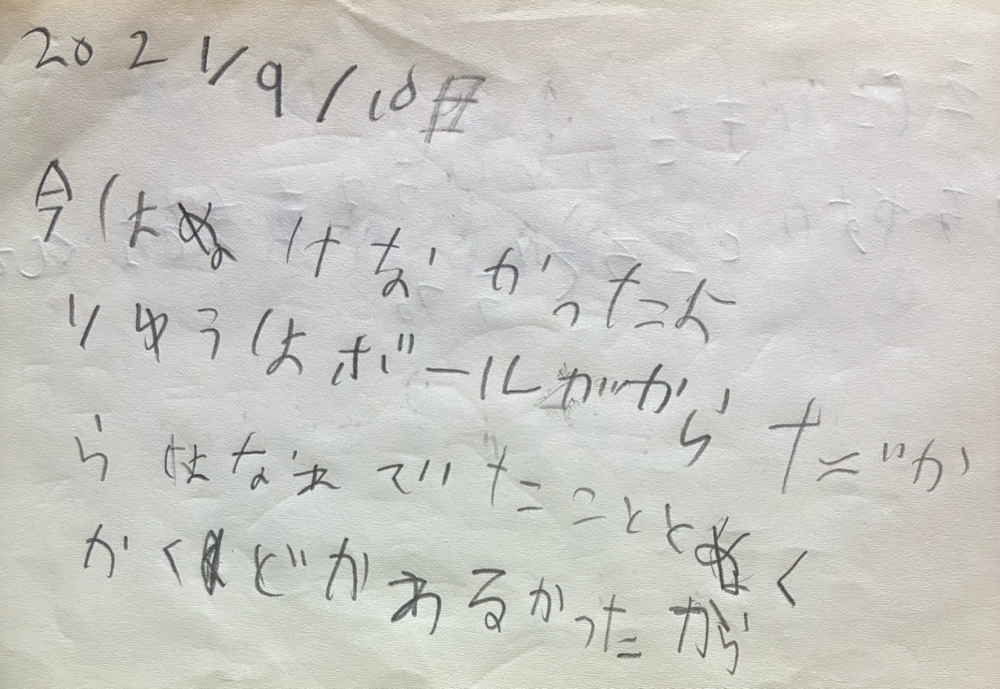 2021/9/10日
今はぬけなかったよ
りゆうはボールがからただか
らはなれていたこととぬく
かくどがあるかったから